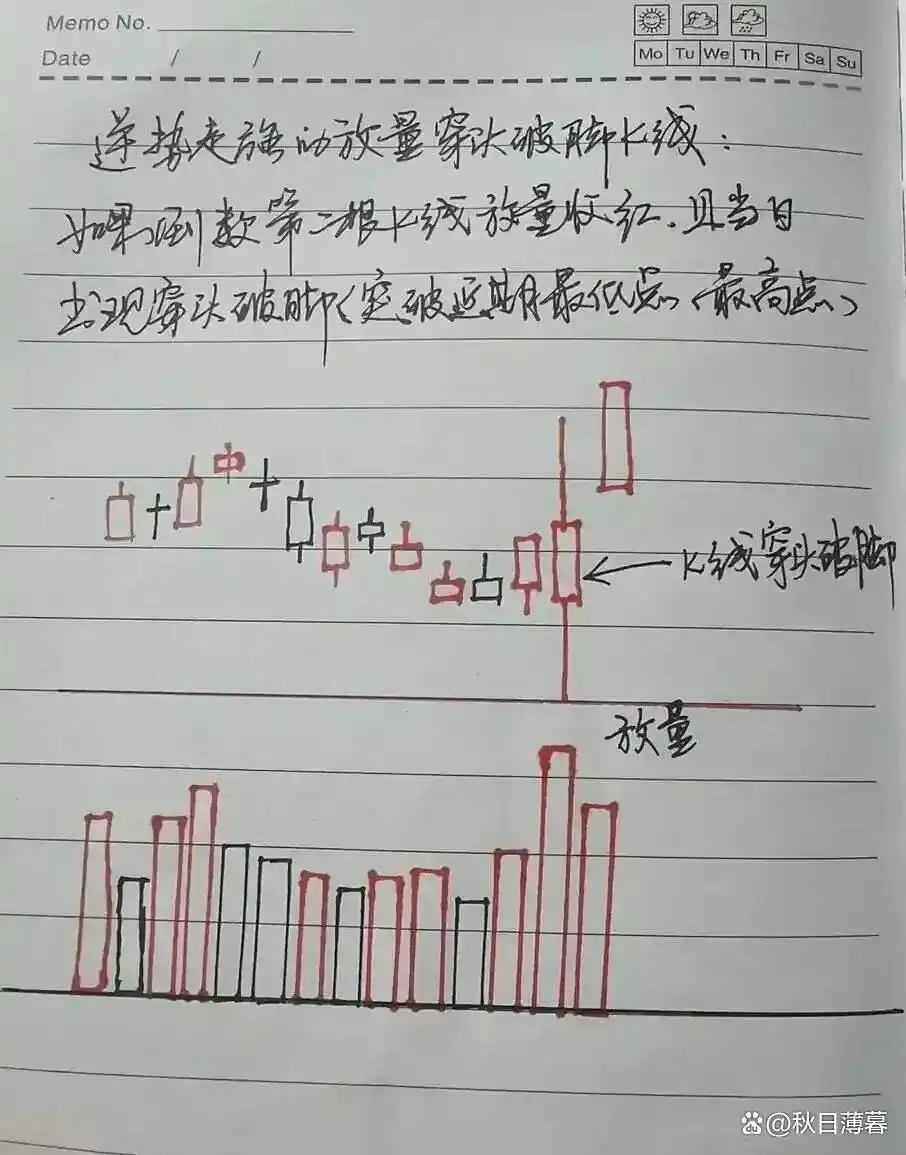 Memo No.
Date / /
Mo Tu We Th Fr Sa Su
逆势走强的放量穿头破脚K线：
如果倒数第二根K线放量收红，且当日
出现穿头破脚（突破近期最低点、最高点）
K线穿头破脚
放量
@秋日薄暮